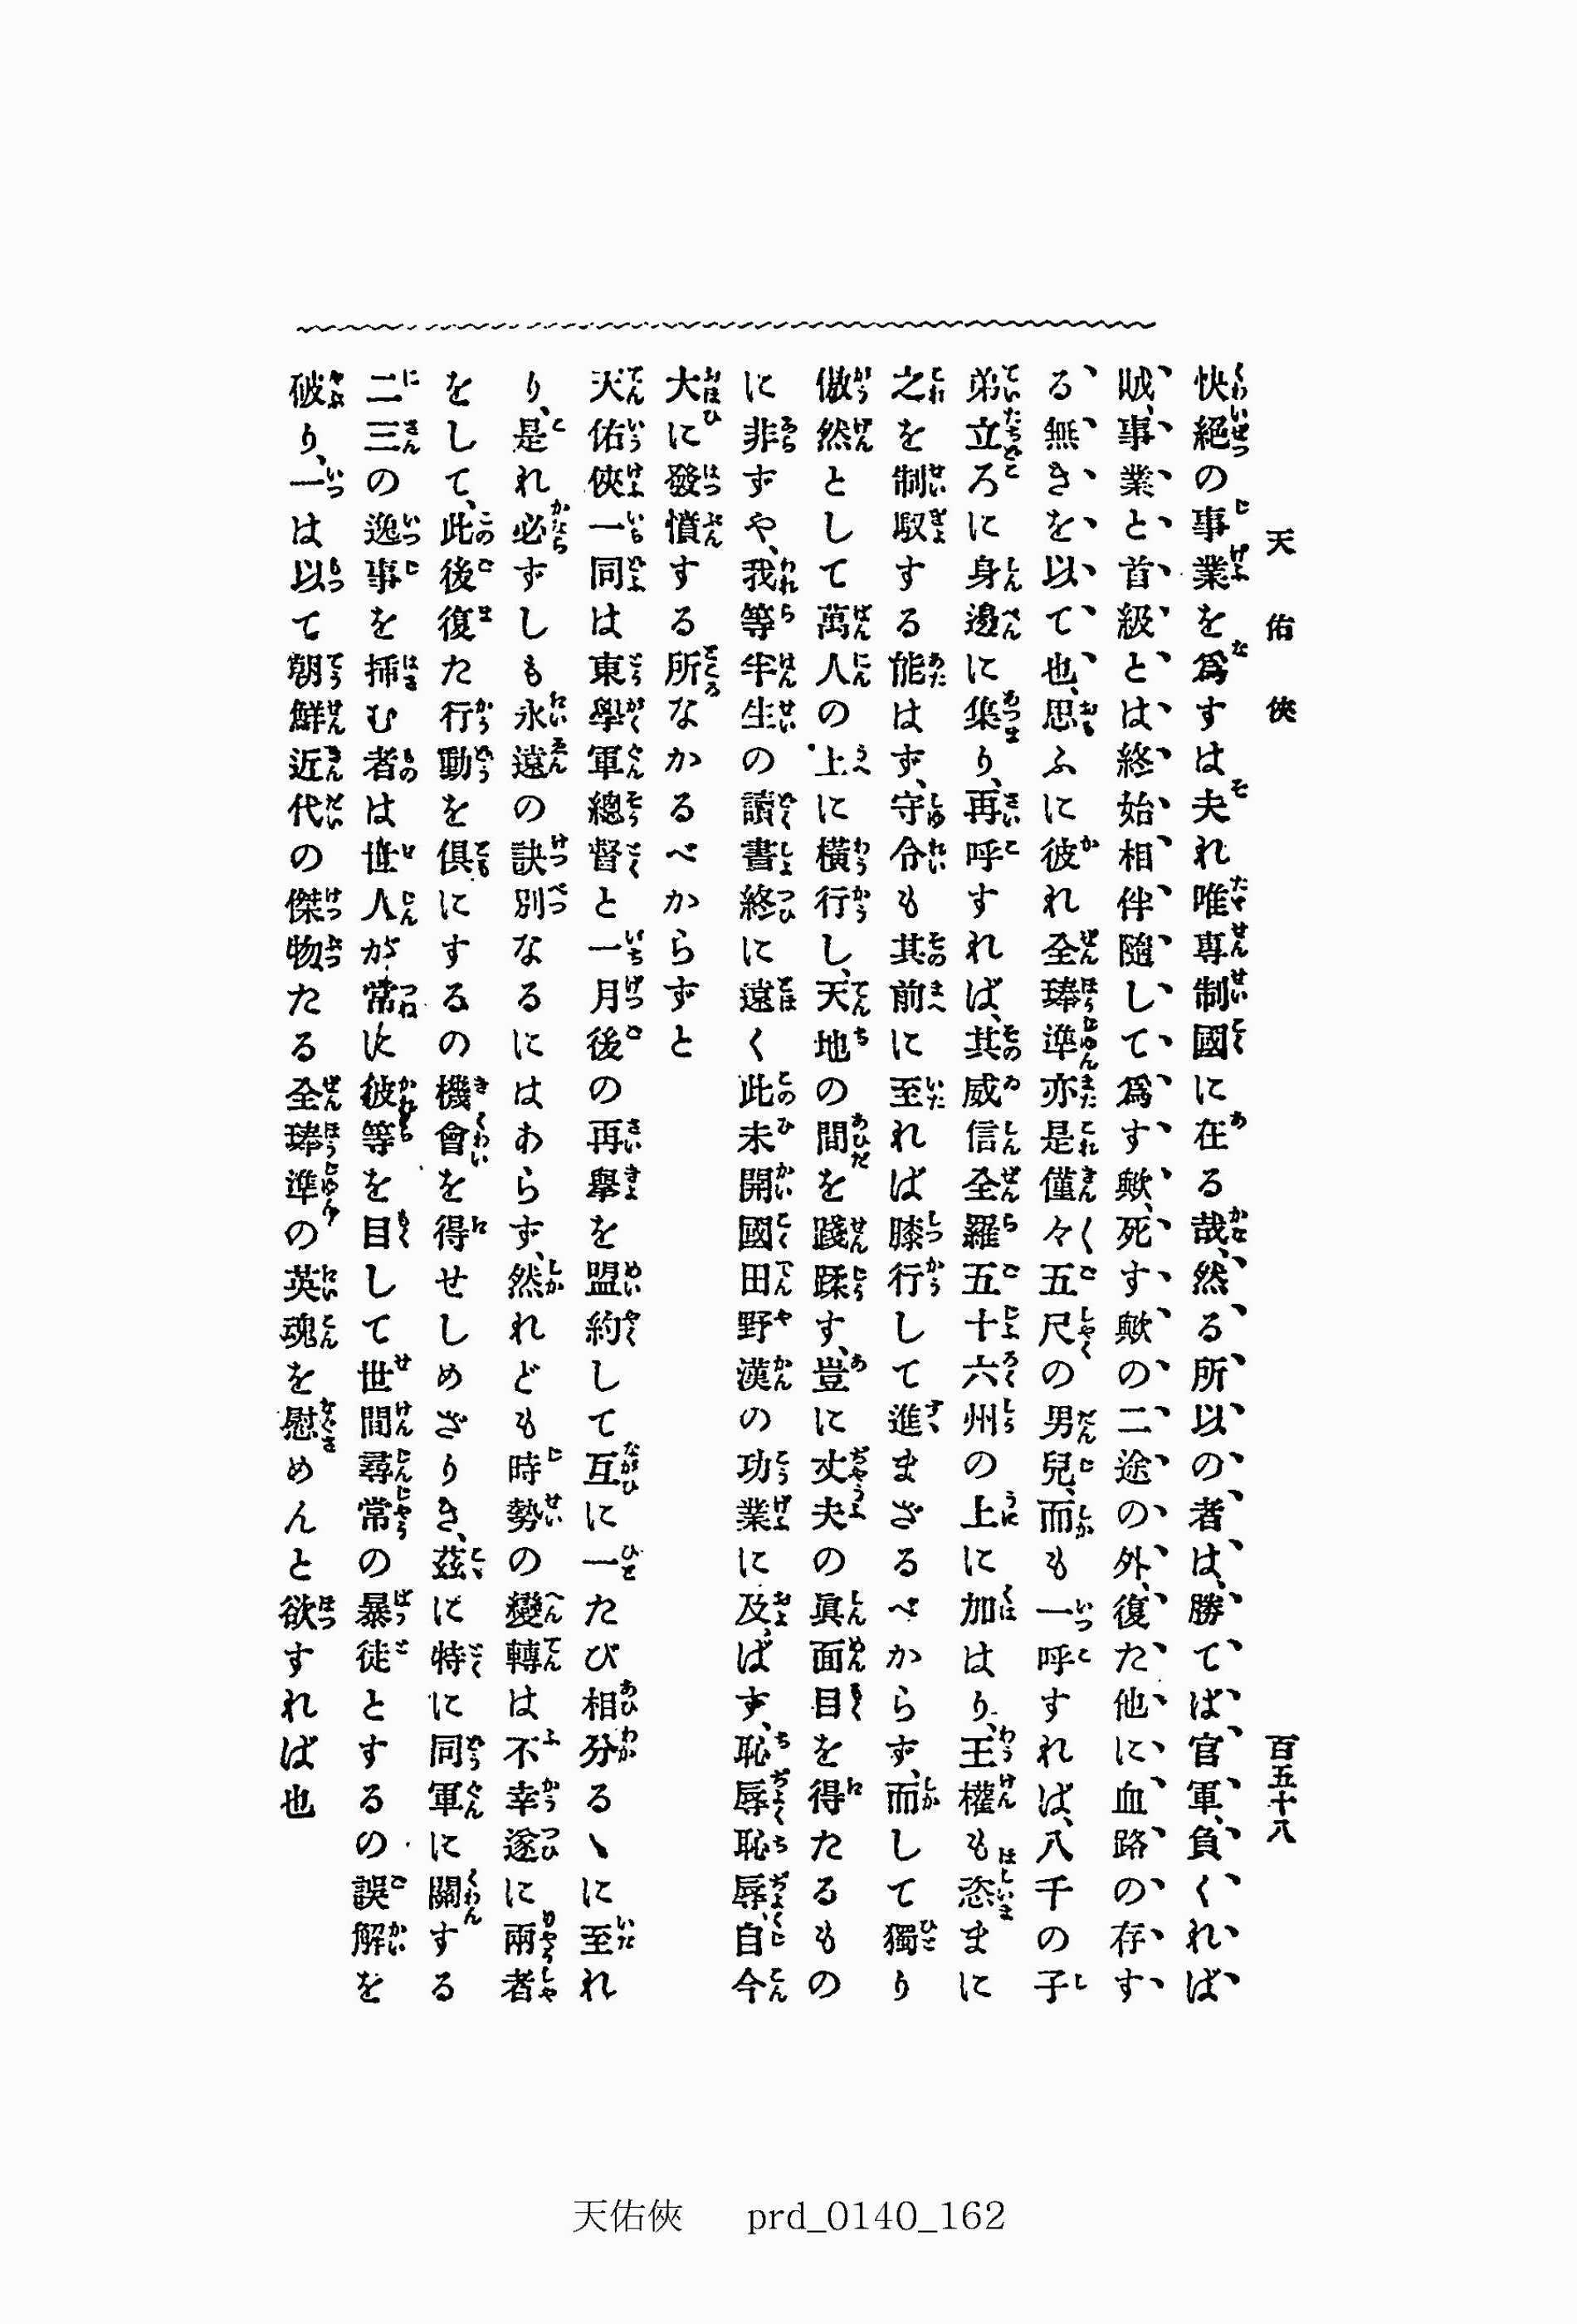 天佑俠
百五十八
快絕の事業を爲すは夫れ唯專制國に在る哉、然る所以の者は、勝てば官軍、負くれば
賊、事業と首級とは終始相伴隨して爲す歟、死す歟の二途の外、復た他に血路の存す
る無きを以て也、思ふに彼れ全琫準亦是僅々五尺の男兒、而も一呼すれば、八千の子
弟立ろに身邊に集り、再呼すれば、其威信全羅五十六州の上に加はり、王權も恣まに
之を制馭する能はず、守令も其前に至れば膝行して進まざるべからず、而して獨り
傲然として萬人の上に橫行し、天地の間を踐蹂す、豈に丈夫の眞面目を得たるもの
に非ずや、我等半生の讀書終に遠く此未開國田野漢の功業に及ばず、恥辱恥辱、自今
大に發憤する所なかるべからずと
天佑俠一同は東學軍總督と一月後の再擧を盟約して互に一たび相分るゝに至れ
り、是れ必ずしも永遠の訣別なるにはあらず、然れども時勢の變轉は不幸遂に兩者
をして、此後復た行動を俱にするの機會を得せしめざりき、茲に特に同軍に關する
二三の逸事を揷む者は世人が常に彼等を目して世間尋常の暴徒とするの誤解を
破り、一は以て朝鮮近代の傑物たる全琫準の英魂を慰めんと欲すれば也
天佑俠 prd_0140_162